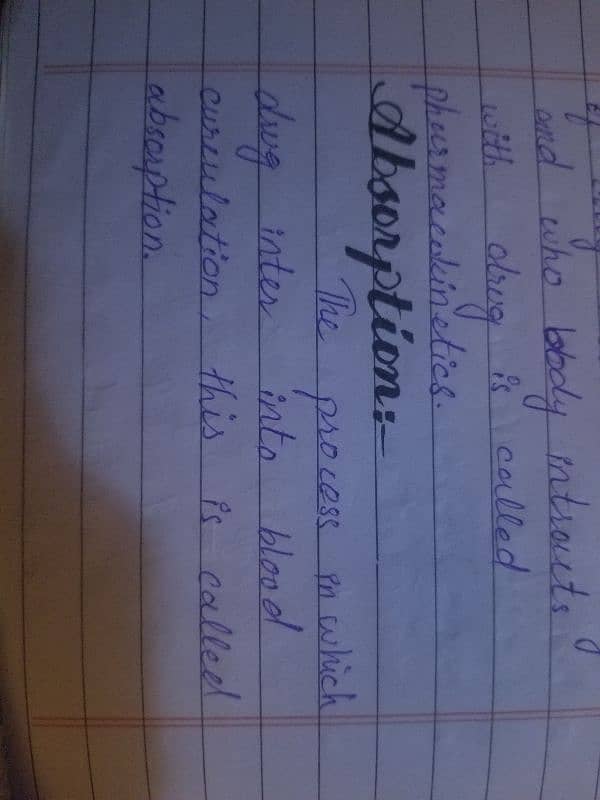 and who body intraits
with drug is called
pharmacokinetics.
Absorption:-
The process in which
drug inter into blood
curculation, this is called
absorption.